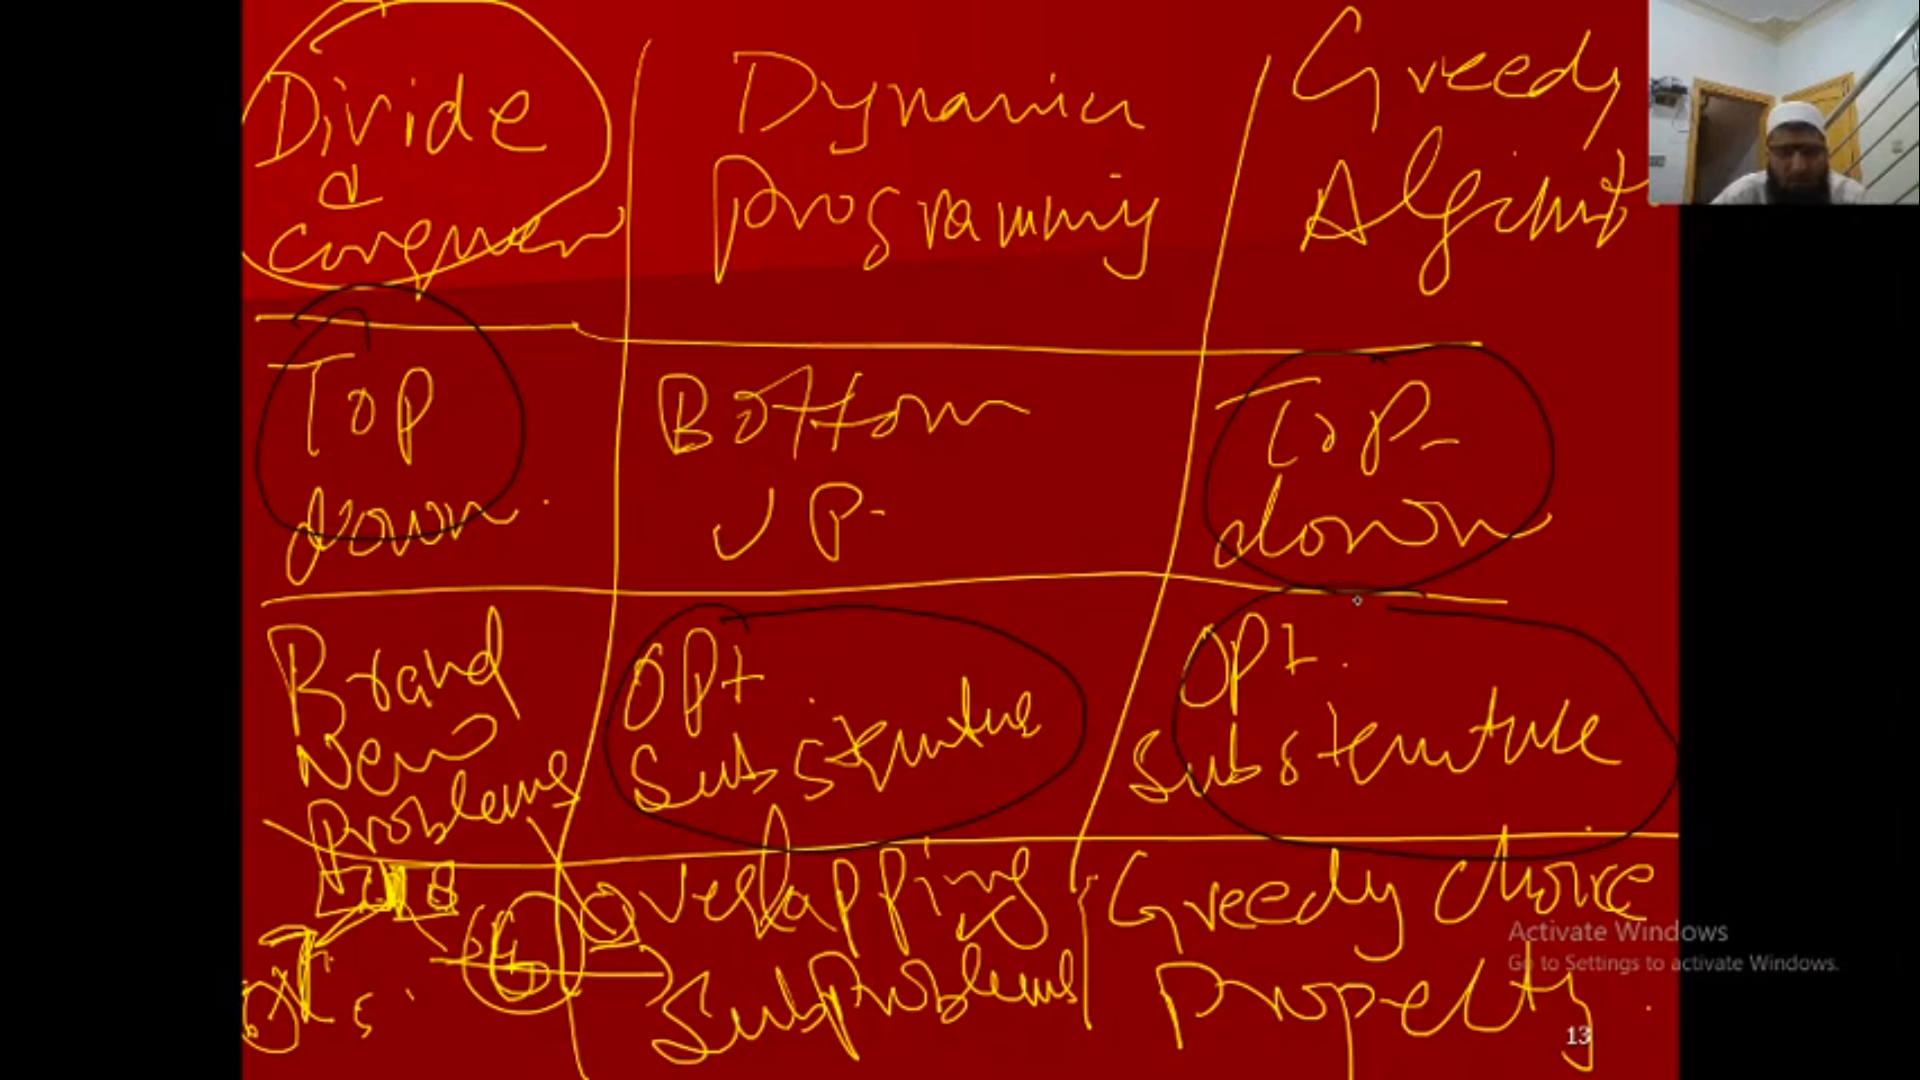 Divide
&
conquer
Dynamic
Programming
Greedy
Top
down.
Bottom
UP-
Top-
down
Brand
New
Problems
Opt
Substructure
Opt.
Substructure
Overlapping
Subproblems
Greedy choice
Property
Activate Windows
Go to Settings to activate Windows.
13